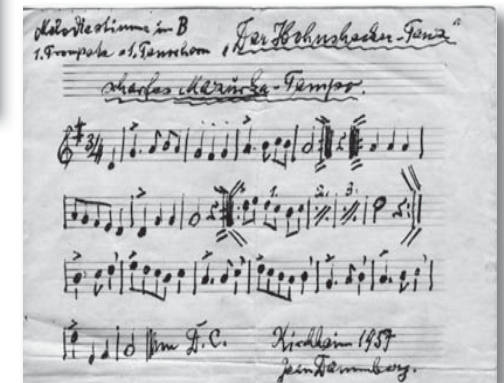 Melodiestimme in B
1. Trompete od. 1. Tenorhorn „Der Hahnhacker-Tanz"
scharfes Mazurka-Tempo.
3/4
1. 2. 3.
D.C. Kirchheim 1957
Jean Dammberg.